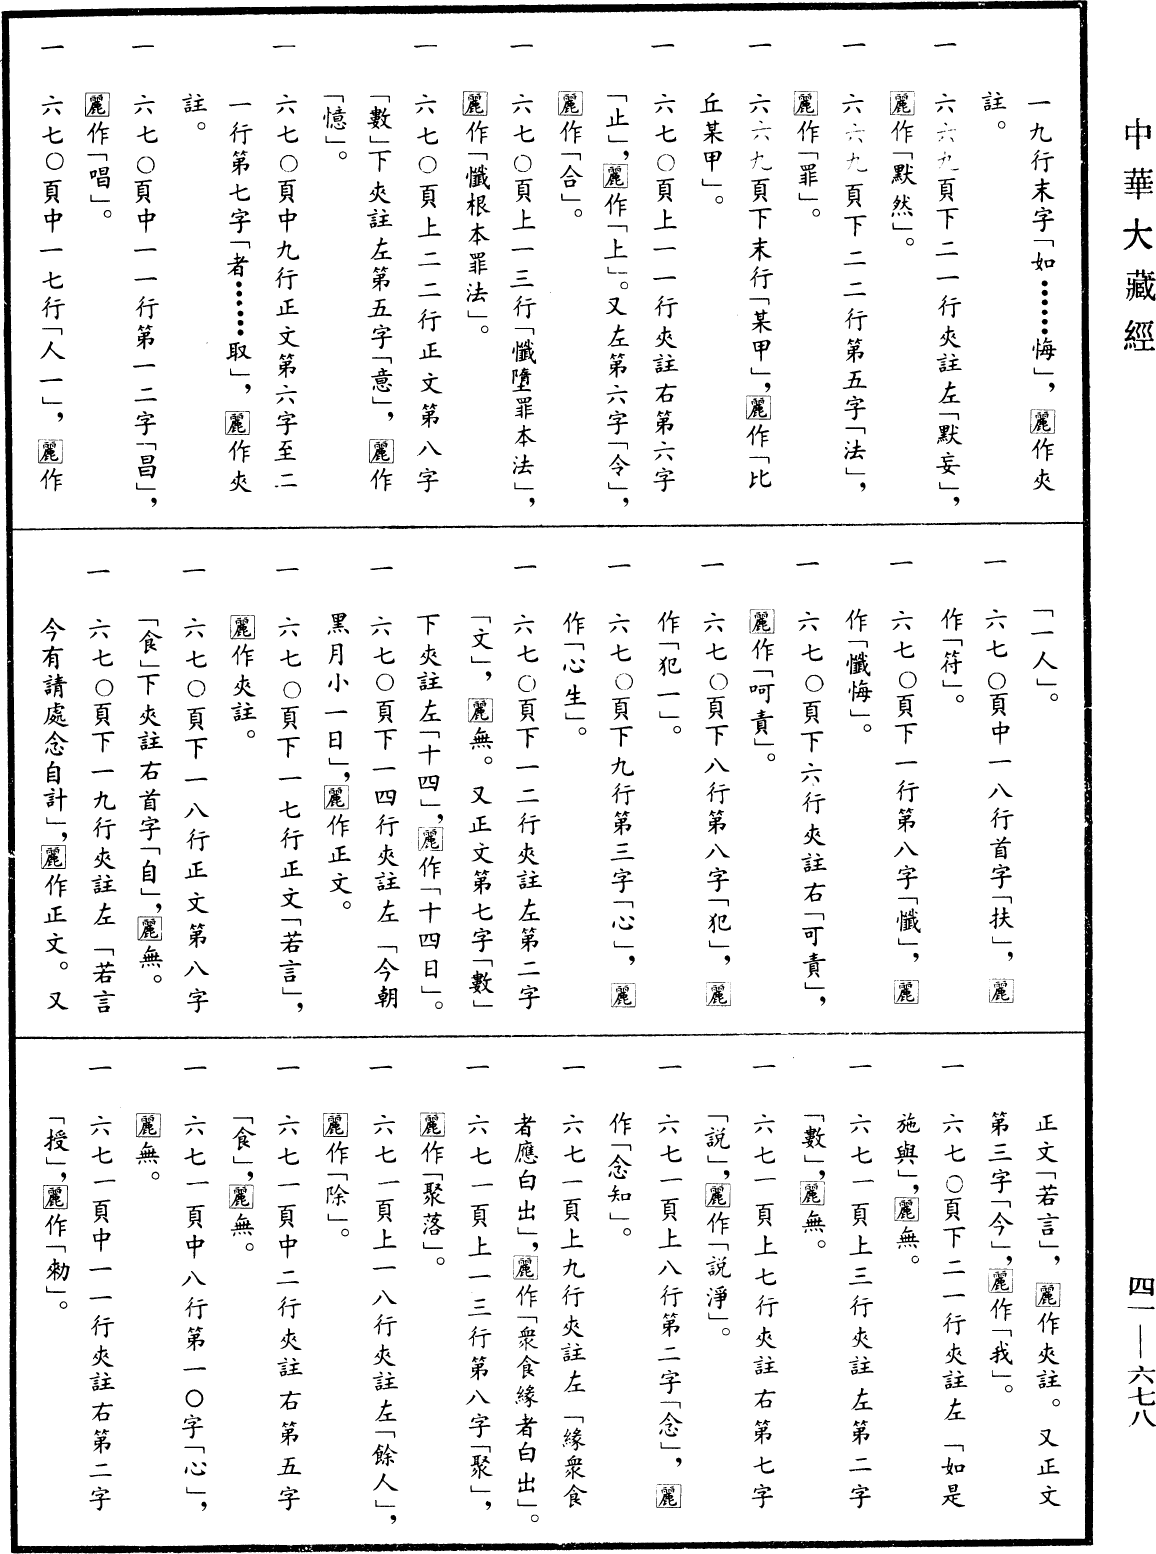 中華大藏經
四一—六七八
一九行末字「如……悔」，麗作夾
註。
一　六六九頁下二一行夾註左「默妄」，
麗作「默然」。
一　六六九頁下二二行第五字「法」，
麗作「罪」。
一　六六九頁下末行「某甲」，麗作「比
丘某甲」。
一　六七〇頁上一一行夾註右第六字
「止」，麗作「上」。又左第六字「令」，
麗作「合」。
一　六七〇頁上一三行「懺墮罪本法」，
麗作「懺根本罪法」。
一　六七〇頁上二二行正文第八字
「數」下夾註左第五字「意」，麗作
「憶」。
一　六七〇頁中九行正文第六字至二
一行第七字「者……取」，麗作夾
註。
一　六七〇頁中一一行第一二字「昌」，
麗作「唱」。
一　六七〇頁中一七行「人一」，麗作
「一人」。
一　六七〇頁中一八行首字「扶」，麗
作「符」。
一　六七〇頁下一行第八字「懺」，麗
作「懺悔」。
一　六七〇頁下六行夾註右「可責」，
麗作「呵責」。
一　六七〇頁下八行第八字「犯」，麗
作「犯一」。
一　六七〇頁下九行第三字「心」，麗
作「心生」。
一　六七〇頁下一二行夾註左第二字
「文」，麗無。又正文第七字「數」
下夾註左「十四」，麗作「十四日」。
一　六七〇頁下一四行夾註左「今朝
黑月小一日」，麗作正文。
一　六七〇頁下一七行正文「若言」，
麗作夾註。
一　六七〇頁下一八行正文第八字
「食」下夾註右首字「自」，麗無。
一　六七〇頁下一九行夾註左「若言
今有請處念自計」，麗作正文。又
正文「若言」，麗作夾註。又正文
第三字「今」，麗作「我」。
一　六七〇頁下二一行夾註左「如是
施與」，麗無。
一　六七一頁上三行夾註左第二字
「數」，麗無。
一　六七一頁上七行夾註右第七字
「說」，麗作「說淨」。
一　六七一頁上八行第二字「念」，麗
作「念知」。
一　六七一頁上九行夾註左「緣衆食
者應白出」，麗作「衆食緣者白出」。
一　六七一頁上一三行第八字「聚」，
麗作「聚落」。
一　六七一頁上一八行夾註左「餘人」，
麗作「除」。
一　六七一頁中二行夾註右第五字
「食」，麗無。
一　六七一頁中八行第一〇字「心」，
麗無。
一　六七一頁中一一行夾註右第二字
「授」，麗作「勑」。